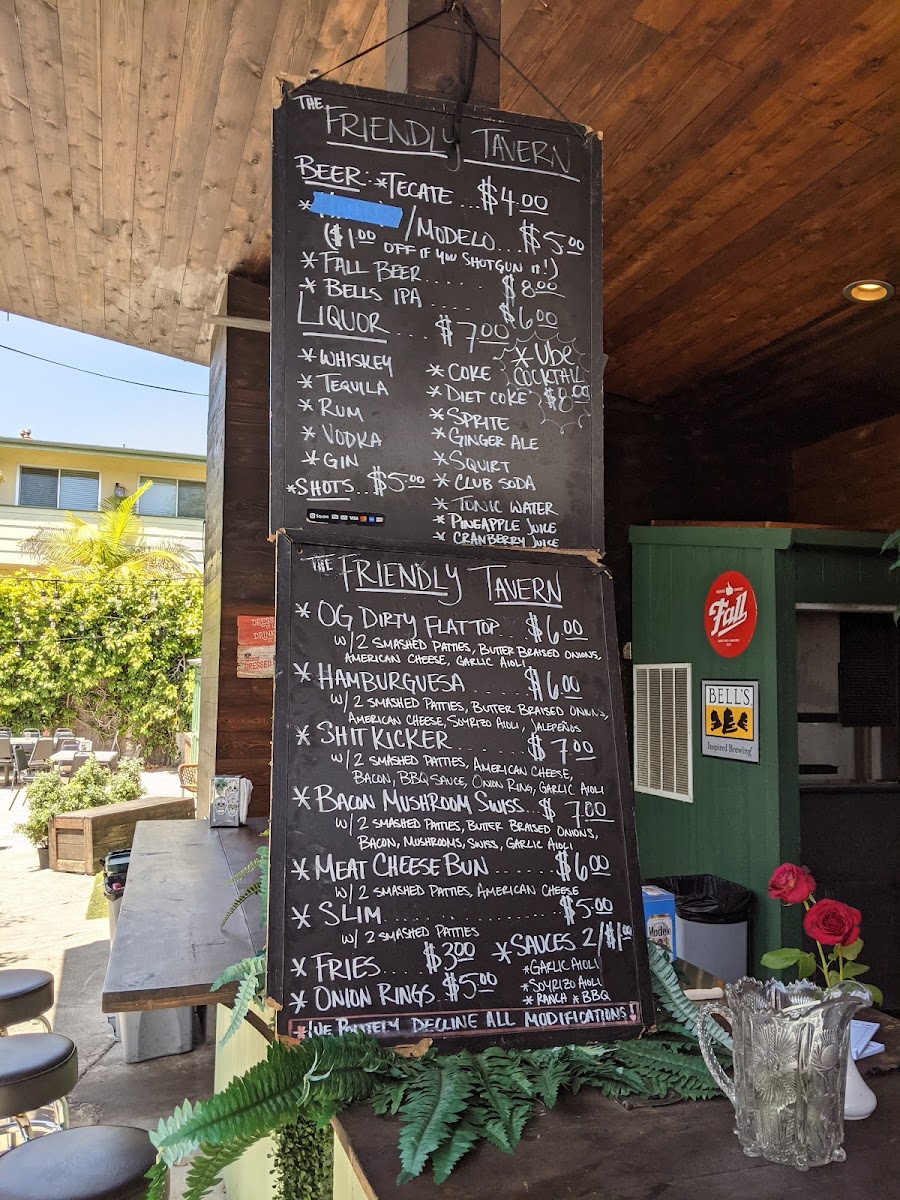 THE FRIENDLY TAVERN
BEER: *TECATE ... $4.00
* /MODELO... $5.00
($1.00 OFF IF YOU SHOTGUN IT!)
* FALL BEER....... $8.00
* BELLS IPA ...... $6.00
LIQUOR .... $7.00
* UBE COCKTAIL $8.00
* WHISKEY
* TEQUILA
* RUM
* VODKA
* GIN
*SHOTS...$5.00
* COKE
* DIET COKE
* SPRITE
* GINGER ALE
* SQUIRT
* CLUB SODA
* TONIC WATER
* PINEAPPLE JUICE
* CRANBERRY JUICE
Square VISA
THE FRIENDLY TAVERN
* OG DIRTY FLAT TOP...$6.00
W/2 SMASHED PATTIES, BUTTER BRAISED ONIONS,
AMERICAN CHEESE, GARLIC AIOLI
* HAMBURGUESA ....... $6.00
W/2 SMASHED PATTIES, BUTTER BRAISED ONIONS,
AMERICAN CHEESE, SOYRIZO AIOLI, JALEPEÑOS
* SHITKICKER ........ $7.00
W/2 SMASHED PATTIES, AMERICAN CHEESE,
BACON, BBQ SAUCE, ONION RING, GARLIC AIOLI
* BACON MUSHROOM SWISS...$ 7.00
W/2 SMASHED PATTIES, BUTTER BRAISED ONIONS,
BACON, MUSHROOMS, SWISS, GARLIC AIOLI
* MEAT CHEESE BUN ......$6.00
W/2 SMASHED PATTIES, AMERICAN CHEESE
* SLIM.................$5.00
W/2 SMASHED PATTIES
* FRIES.... $3.00
* ONION RINGS. $5.00
*SAUCES 2/$1.00
*GARLIC AIOLI
*SOYRIZO AIOLI
* RANCH * BBQ
*WE POLITELY DECLINE ALL MODIFICATIONS!
DRINK
DRESSED
Fall
BELL'S
Inspired Brewing
Modelo